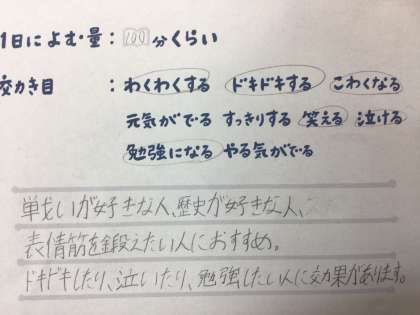 1日によむ量:100分くらい
交かき目:わくわくする ドキドキする こわくなる
元気がでる すっきりする 笑える 泣ける
勉強になる やる気がでる
単戈いが好きな人、歴史が好きな人、
表情筋を鍛えたい人におすすめ。
ドキドキしたり、泣いたり、勉強したい人に交力果があります。